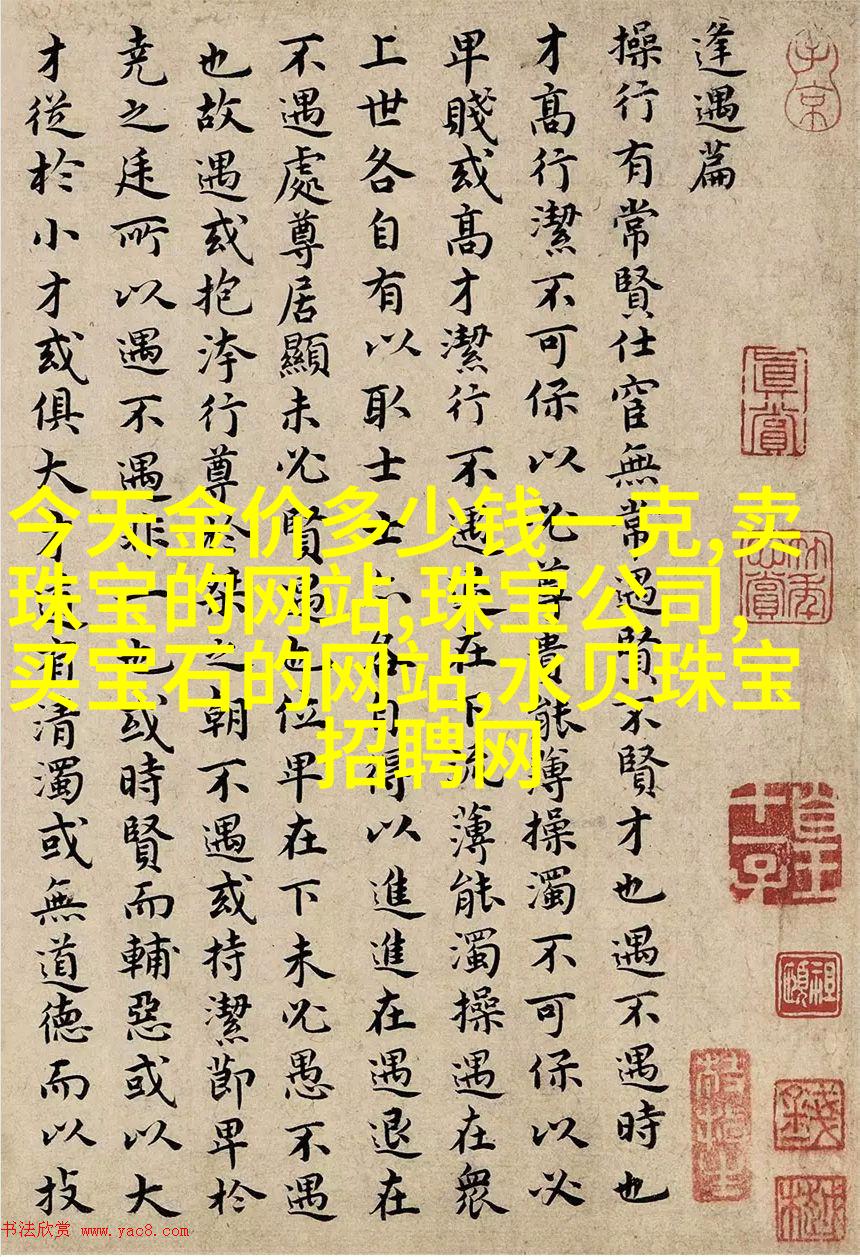 逢遇篇
操行有常賢仕宦無常遇賢不賢才也遇不遇時也
才高行潔不可保以必尊貴能薄操濁不可保以必
卑賤或高才潔行不遇退在下流薄能濁操遇在衆
上世各自有以取士士亦各自得以進進在遇退在
不遇處尊居顯未必賢遇也位卑在下未必愚不遇
也故遇或抱洿行尊於桀之朝不遇或持潔節卑於
尭之廷所以遇不遇非一也或時賢而輔惡或以大
才從於小才或俱大才道有清濁或無道德而以技
子京
眞賞
今天金价多少钱一克,卖
珠宝的网站,珠宝公司,
买宝石的网站,水贝珠宝
招聘网
书法欣赏 www.yac8.com